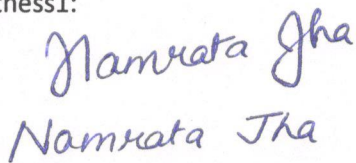 ness1:
Namrata Jha
Namrata Jha